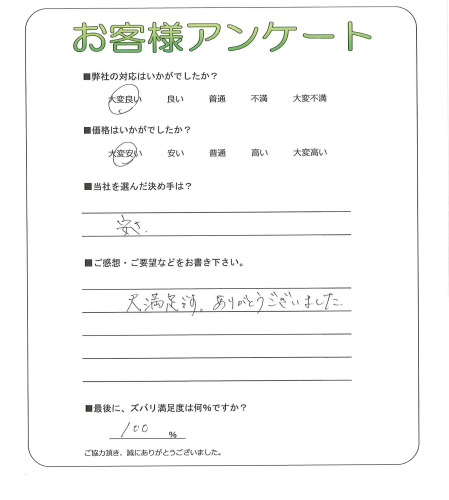 お客様アンケート
■弊社の対応はいかがでしたか？
大変良い 良い 普通 不満 大変不満
■価格はいかがでしたか？
大変安い 安い 普通 高い 大変高い
■当社を選んだ決め手は？
安さ.
■ご感想・ご要望などをお書き下さい。
大満足です。ありがとうございました.
■最後に、ズバリ満足度は何%ですか？
100 %
ご協力頂き、誠にありがとうございました。